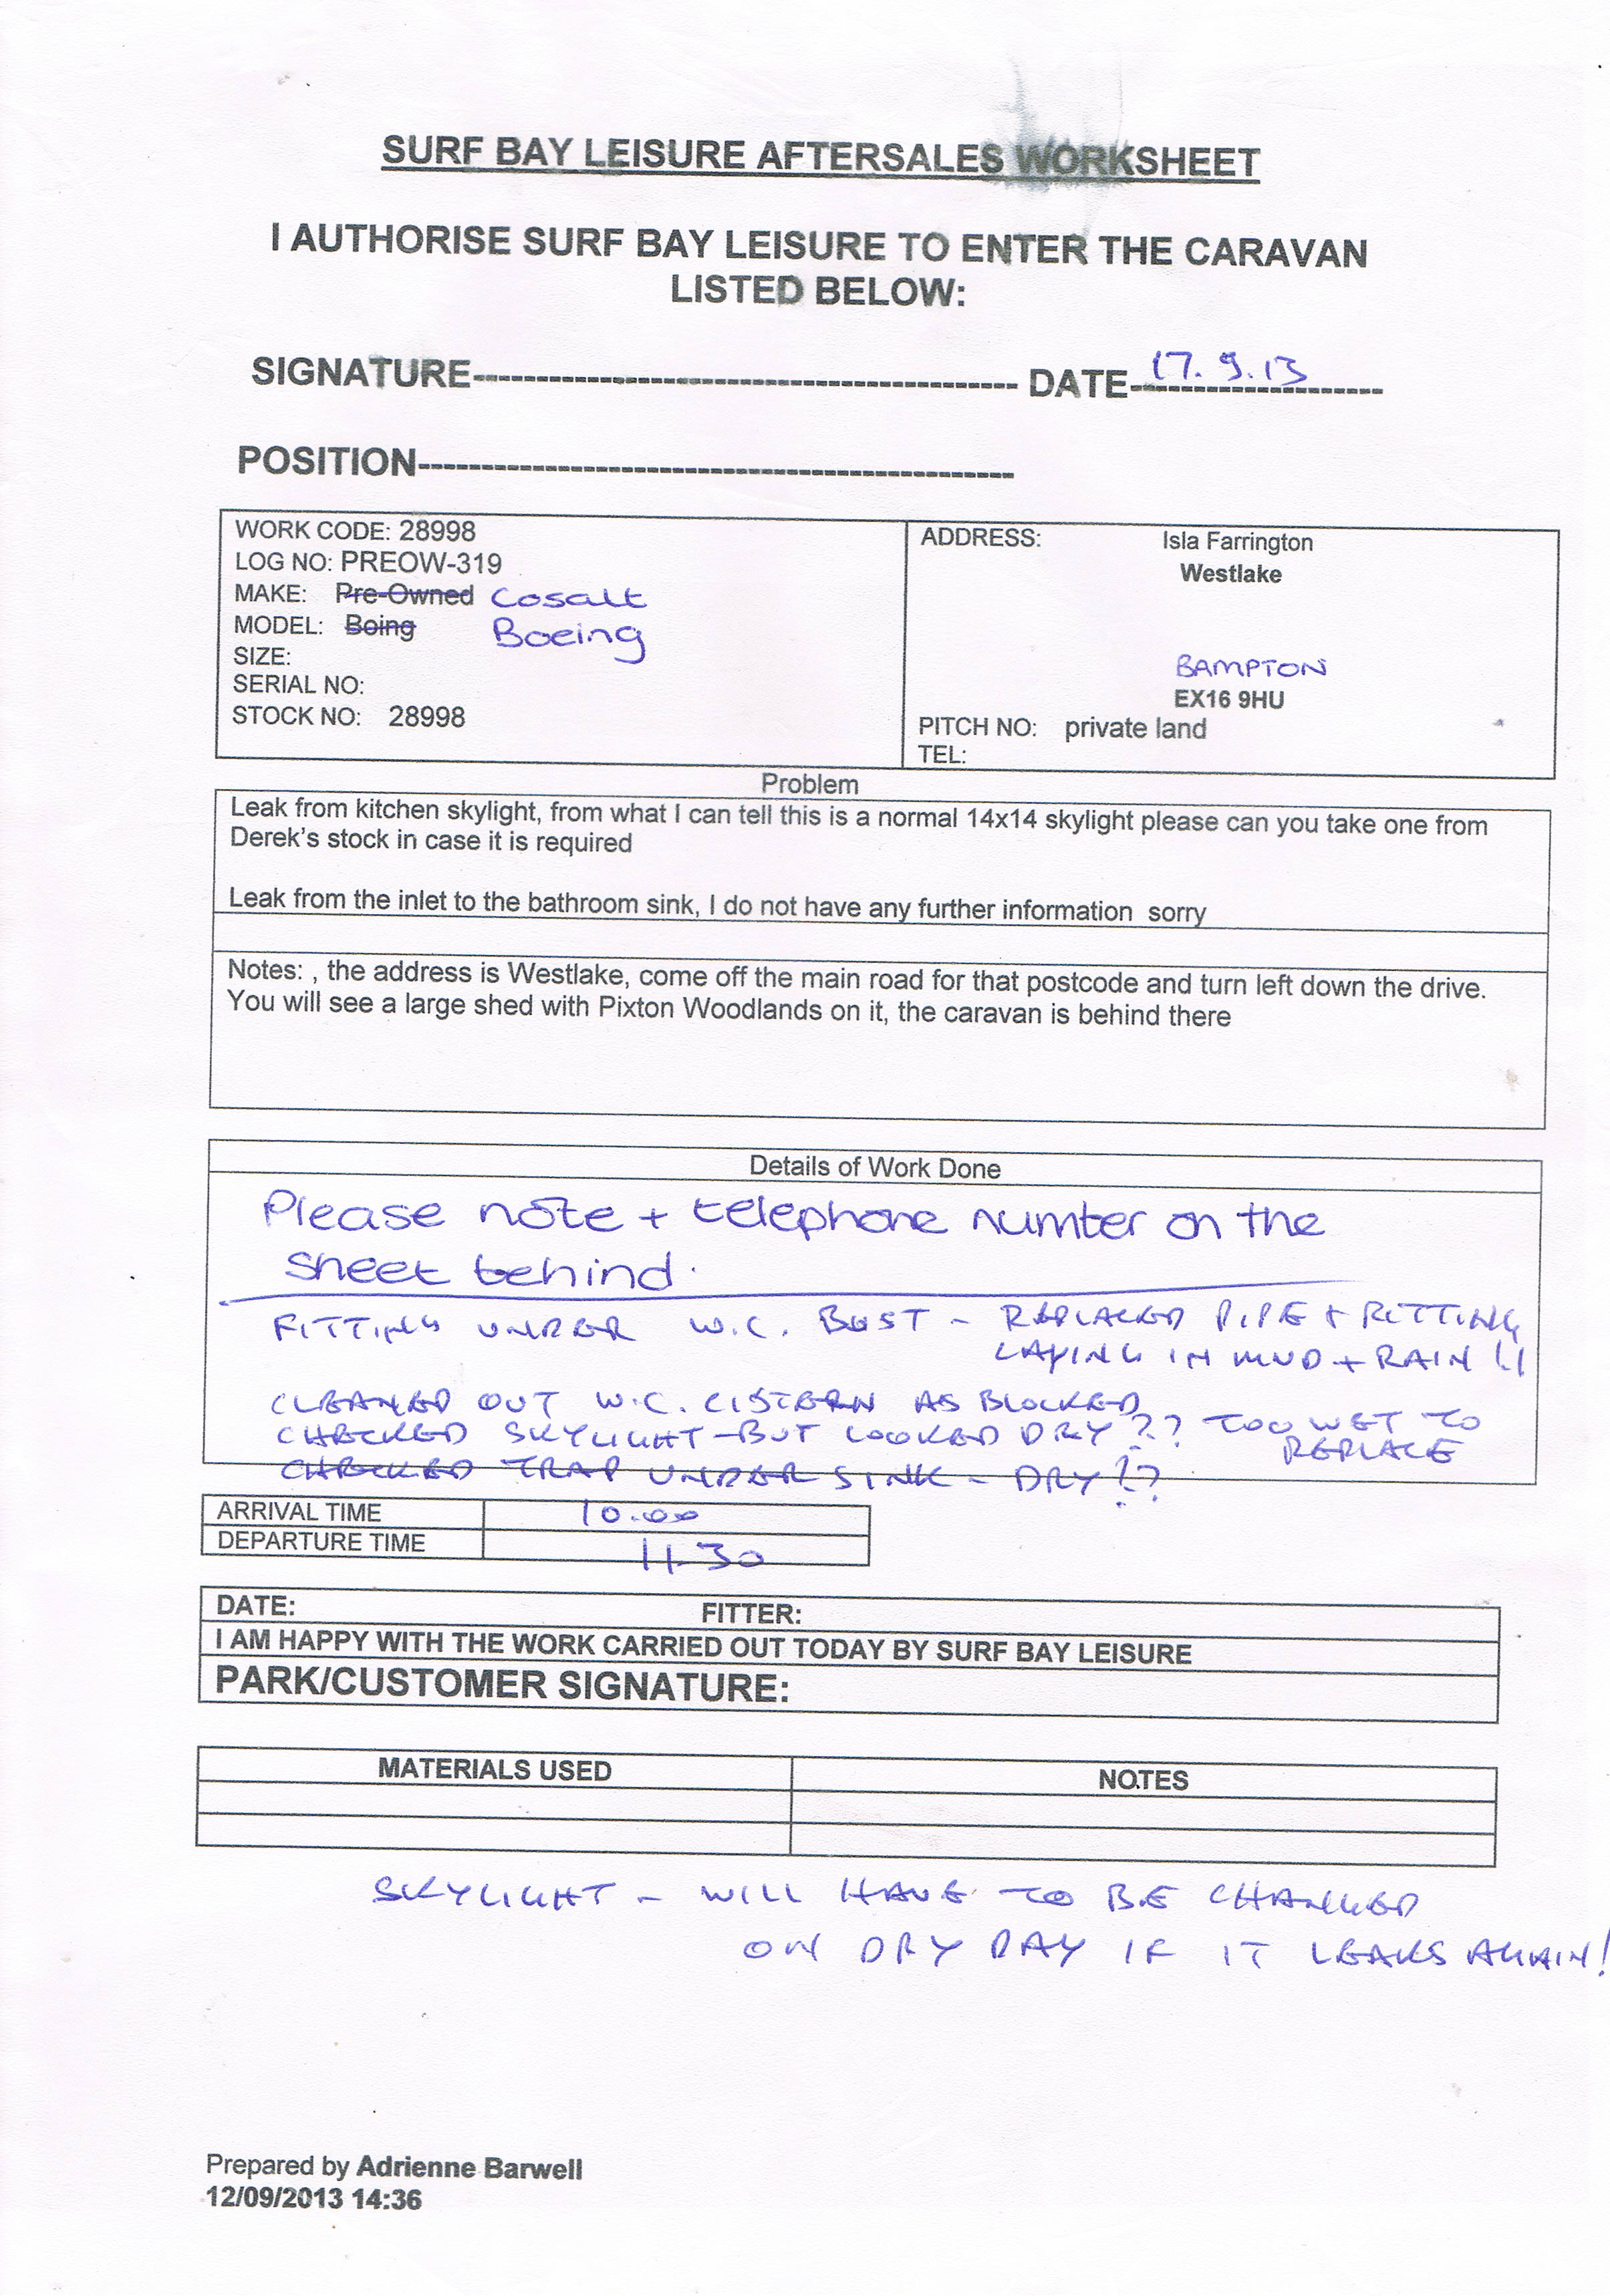 SURF BAY LEISURE AFTERSALES WORKSHEET
I AUTHORISE SURF BAY LEISURE TO ENTER THE CARAVAN
LISTED BELOW:
SIGNATURE DATE 17.9.13
POSITION
WORK CODE: 28998
LOG NO: PREOW-319
MAKE: Pre-Owned Cosalt
MODEL: Boing Boeing
SIZE:
SERIAL NO:
STOCK NO: 28998
ADDRESS: Isla Farrington
Westlake
BAMPTON
EX16 9HU
PITCH NO: private land
TEL:
Problem
Leak from kitchen skylight, from what I can tell this is a normal 14x14 skylight please can you take one from
Derek's stock in case it is required
Leak from the inlet to the bathroom sink, I do not have any further information sorry
Notes: , the address is Westlake, come off the main road for that postcode and turn left down the drive.
You will see a large shed with Pixton Woodlands on it, the caravan is behind there
Details of Work Done
Please note + telephone number on the
sheet behind.
FITTING UNDER W.C. BUST - REPLACED PIPE + FITTING
LAYING IN MUD + RAIN !!
CLEANED OUT W.C. CISTERN AS BLOCKED
CHECKED SKYLIGHT - BUT LOOKED DRY ?? TOO WET TO
REPLACE
CHECKED TRAP UNDER SINK - DRY !?
ARRIVAL TIME 10.00
DEPARTURE TIME 11.30
DATE: FITTER:
I AM HAPPY WITH THE WORK CARRIED OUT TODAY BY SURF BAY LEISURE
PARK/CUSTOMER SIGNATURE:
MATERIALS USED NOTES
SKYLIGHT - WILL HAVE TO BE CHANGED
ON DRY DAY IF IT LEAKS AGAIN!
Prepared by Adrienne Barwell
12/09/2013 14:36